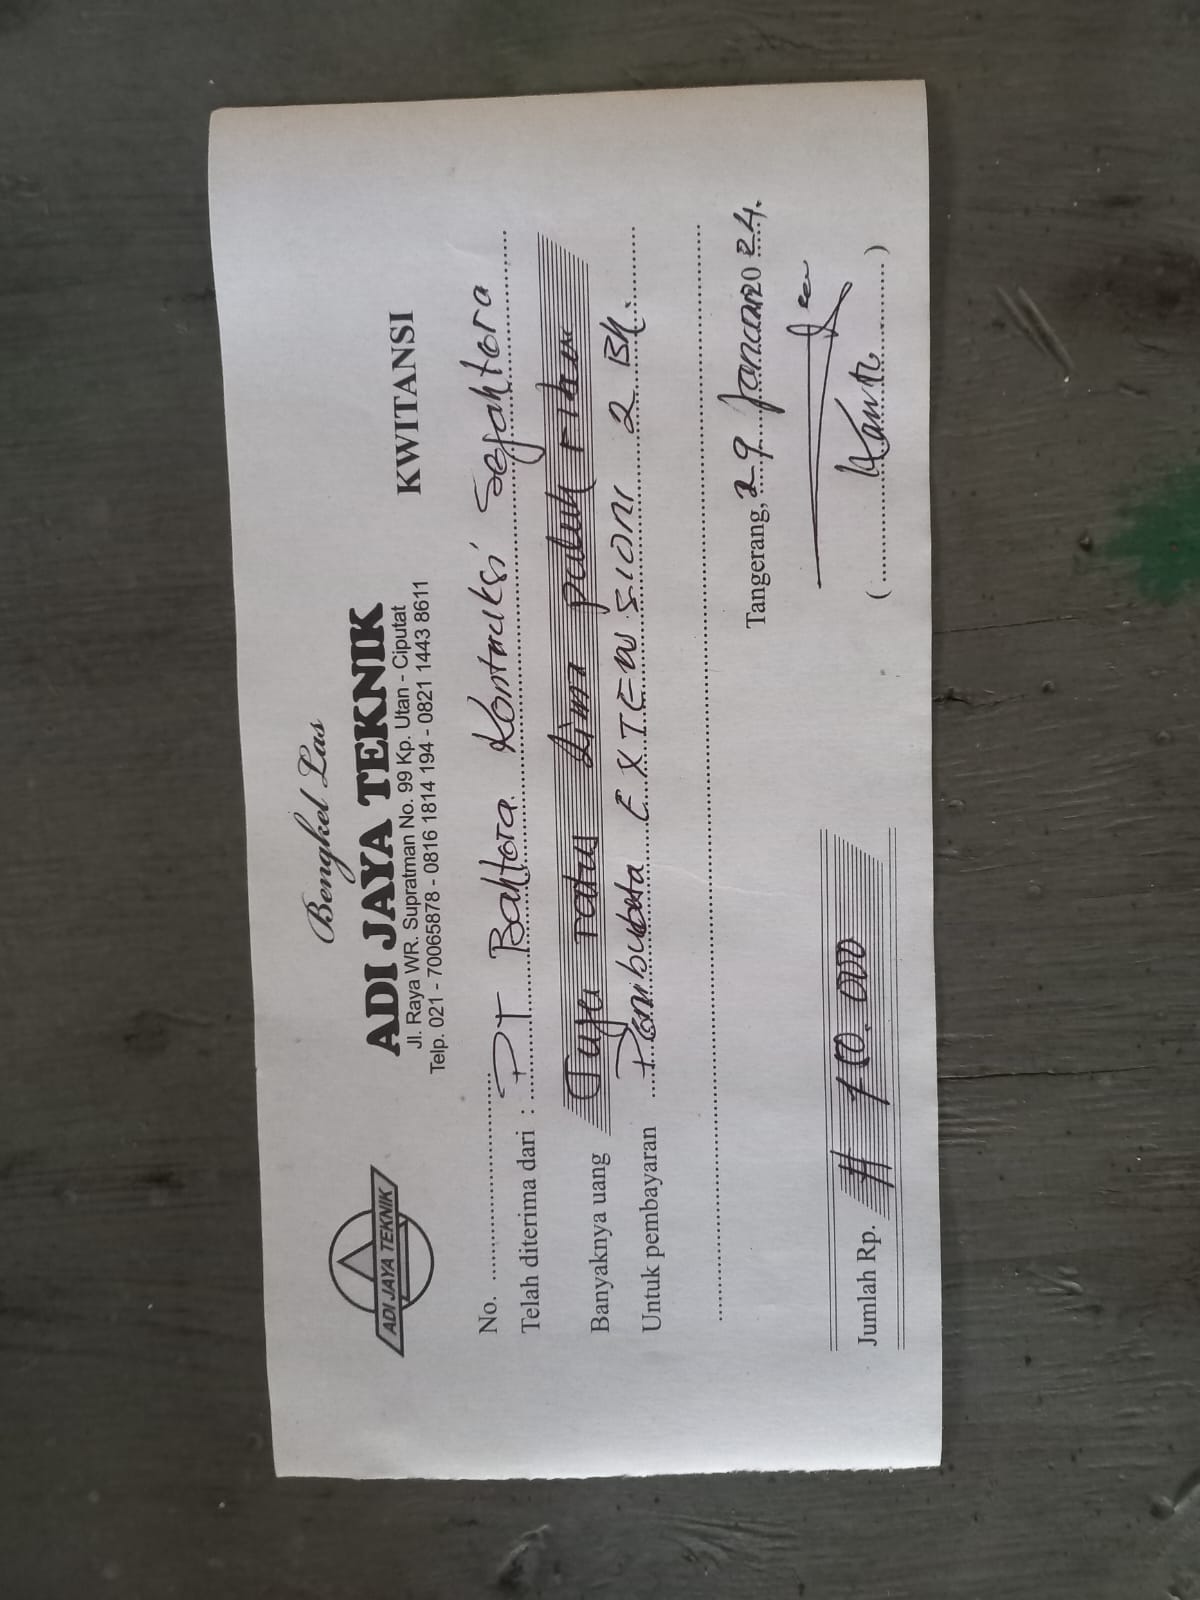 ADI JAYA TEKNIK
Bengkel Las
ADI JAYA TEKNIK
Jl. Raya WR. Supratman No. 99 Kp. Utan - Ciputat
Telp. 021 - 70065878 - 0816 1814 194 - 0821 1443 8611
KWITANSI
No. ..............................
Telah diterima dari : PT Bahtera Kontruksi Sejahtera
Banyaknya uang Tuju ratus lima puluh ribu
Untuk pembayaran EXTENSION 2 Bh.
Tangerang, 29 Januari 2024.
Jumlah Rp. # 750.000
(..............................)